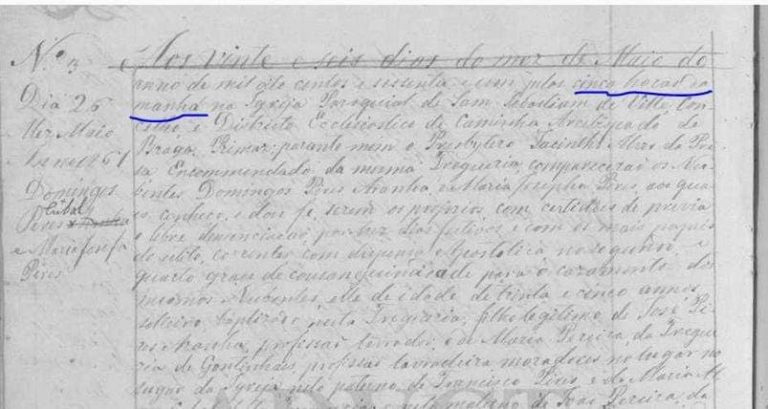 N.º 3
Dia 26
Mez Maio
Anno 1861
Domingos
Cribal
Pires Aranha
e Maria Josefa
Pires
Aos vinte e seis dias do mez de Maio do
anno de mil oito centos e sesenta e um pelas cinco horas da
manhã na Igreja Paroquial de Sam Sebastiam de Ville, Con-
celho, e Districto Ecclesiastico de Caminha Arcebispado de
Braga Primaz, perante mim o Presbytero Jacintho Alves da Pre-
sa Encommendado da mesma Freguezia comparecerão os Nu-
bentes Domingos Pires Aranha, e Maria Josepha Pires, aos quaes
conheço, e dou fé, serem os proprios com certidões de previa
e livre denunciação por trez dias festivos e com os mais papeis
do estilo, correntes com dispensa Apostolica, no segundo, e
quarto, grao de consanguinidade para o cazamento dos
mesmos Nubentes, elle de idade de trinta e cinco annos,
solteiro, baptizado nesta Freguezia, filho legitimo de José Pi-
res Aranha, profissão lavrador, e de Maria Pereira, da Fregue-
zia de Gontinhaes, profissão lavradeira moradores no lugar
da Igreja neto paterno de Francisco Pires, e de Maria
e neto materno de João Pereira, da